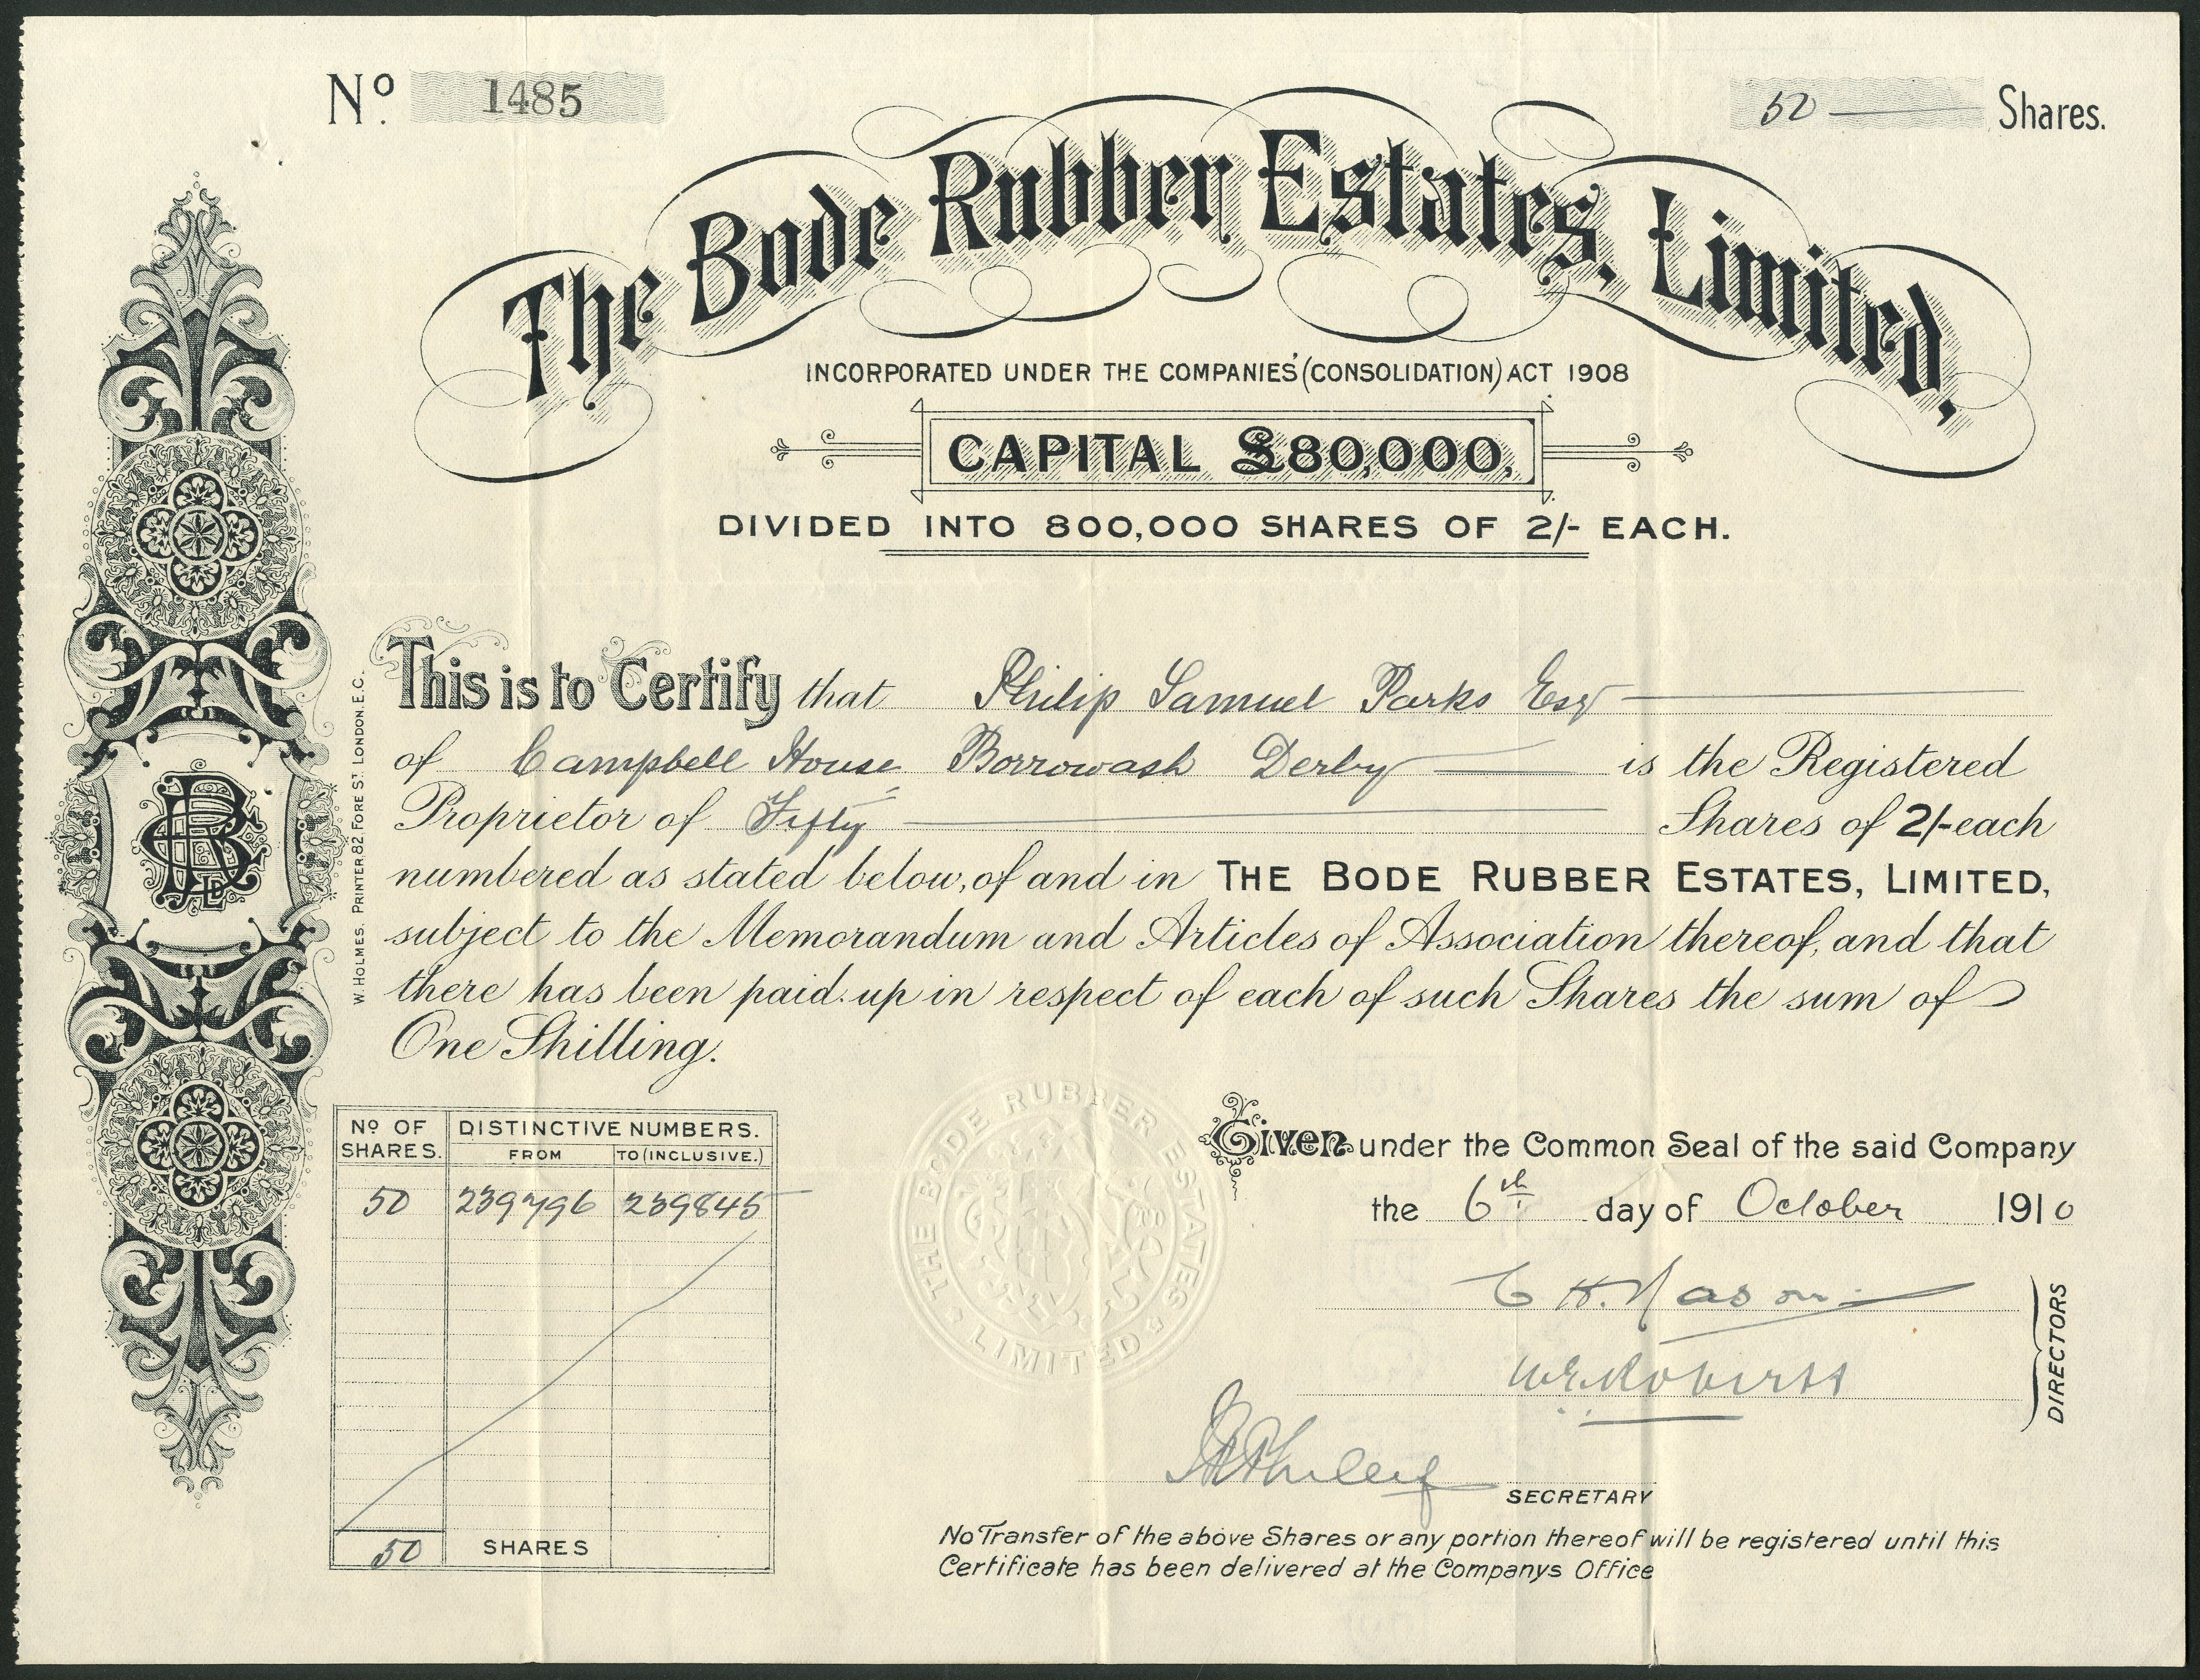 Nº. 1485
50 Shares.
The Bode Rubber Estates, Limited,
INCORPORATED UNDER THE COMPANIES' (CONSOLIDATION) ACT 1908
CAPITAL £80,000,
DIVIDED INTO 800,000 SHARES OF 2/- EACH.
This is to Certify that Philip Samuel Parks Esq
of Campbell House Borrowash Derby is the Registered
Proprietor of Fifty Shares of 2/- each
numbered as stated below, of and in THE BODE RUBBER ESTATES, LIMITED,
subject to the Memorandum and Articles of Association thereof, and that
there has been paid up in respect of each of such Shares the sum of
One Shilling.
W. HOLMES. PRINTER. 82, FORE ST. LONDON. E.C.
Nº OF SHARES. DISTINCTIVE NUMBERS.
FROM TO (INCLUSIVE.)
50 239796 239845
50 SHARES
THE BODE RUBBER ESTATES LIMITED
Given under the Common Seal of the said Company
the 6th day of October 1910
C H. Nason
W.E. Roberts
DIRECTORS
SECRETARY
No Transfer of the above Shares or any portion thereof will be registered until this
Certificate has been delivered at the Companys Office